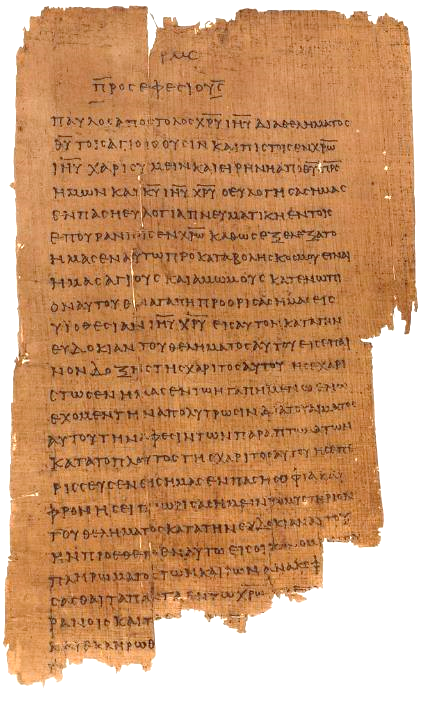 ΡΜϚ
ΠΡΟϹΕΦΕϹΙΟΥϹ
ΠΑΥΛΟϹΑΠΟϹΤΟΛΟϹΧ̅Ρ̅Υ̅Ι̅Η̅Υ̅ΔΙΑΘΕΛΗΜΑΤΟϹ
Θ̅Υ̅ΤΟΙϹΑΓΙΟΙϹΟΥϹΙΝΚΑΙΠΙϹΤΟΙϹΕΝΧ̅Ρ̅Ω̅
Ι̅Η̅Υ̅ΧΑΡΙϹΥΜΕΙΝΚΑΙΕΙΡΗΝΗΑΠΟΘ̅Υ̅Π̅Ρ̅Ϲ̅
ΗΜΩΝΚΑΙΚ̅Υ̅Ι̅Η̅Υ̅Χ̅Ρ̅Υ̅ΟΕΥΛΟΓΗϹΑϹΗΜΑϹ
ΕΝΠΑϹΗΕΥΛΟΓΙΑΠΝΕΥΜΑΤΙΚΗΕΝΤΟΙϹ
ΕΠΟΥΡΑΝΙΟΙϹΕΝΧ̅Ρ̅Ω̅ΚΑΘΩϹΕΞΕΛΕΞΑΤΟ
ΗΜΑϹΕΝΑΥΤΩΠΡΟΚΑΤΑΒΟΛΗϹΚΟϹΜΟΥΕΙΝΑΙ
ΗΜΑϹΑΓΙΟΥϹΚΑΙΑΜΩΜΟΥϹΚΑΤΕΝΩΠΙ
ΟΝΑΥΤΟΥΕΝΑΓΑΠΗΠΡΟΟΡΙϹΑϹΗΜΑϹΕΙϹ
ΥΙΟΘΕϹΙΑΝΙ̅Η̅Υ̅Χ̅Ρ̅Υ̅ΕΙϹΑΥΤΟΝΚΑΤΑΤΗΝ
ΕΥΔΟΚΙΑΝΤΟΥΘΕΛΗΜΑΤΟϹΑΥΤΟΥΕΙϹΕΠΑΙ
ΝΟΝΔΟΞΗϹΤΗϹΧΑΡΙΤΟϹΑΥΤΟΥΗϹΕΧΑΡΙ
ΤΩϹΕΝΗΜΑϹΕΝΤΩΗΓΑΠΗΜΕΝΩΕΝΩ
ΕΧΟΜΕΝΤΗΝΑΠΟΛΥΤΡΩϹΙΝΔΙΑΤΟΥΑΙΜΑΤΟϹ
ΑΥΤΟΥΤΗΝΑΦΕϹΙΝΤΩΝΠΑΡΑΠΤΩΜΑΤΩΝ
ΚΑΤΑΤΟΠΛΟΥΤΟϹΤΗϹΧΑΡΙΤΟϹΑΥΤΟΥΗϹΕΠΕ
ΡΙϹϹΕΥϹΕΝΕΙϹΗΜΑϹΕΝΠΑϹΗϹΟΦΙΑΚΑΙ
ΦΡΟΝΗϹΕΙΓΝΩΡΙϹΑϹΗΜΕΙΝΤΟΜΥϹΤΗΡΙΟΝ
ΤΟΥΘΕΛΗΜΑΤΟϹΚΑΤΑΤΗΝΕΥΔΟΚΙΑΝΑΥΤΟΥ
ΗΝΠΡΟΕΘΕΤΟΕΝΑΥΤΩΕΙϹΟΙΚΟΝΟΜΙΑΝ
ΠΛΗΡΩΜΑΤΟϹΤΩΝΚΑΙΡΩΝΑΝΑΚΕΦ
ϹΑϹΘΑΙΤΑΠΑΝΤΑΕΝΤΩΧ̅Ρ̅Ω̅
ΡΑΝΟΙϹΚΑΙΤ
ΚΑΙΕΚΛΗΡΩΘ